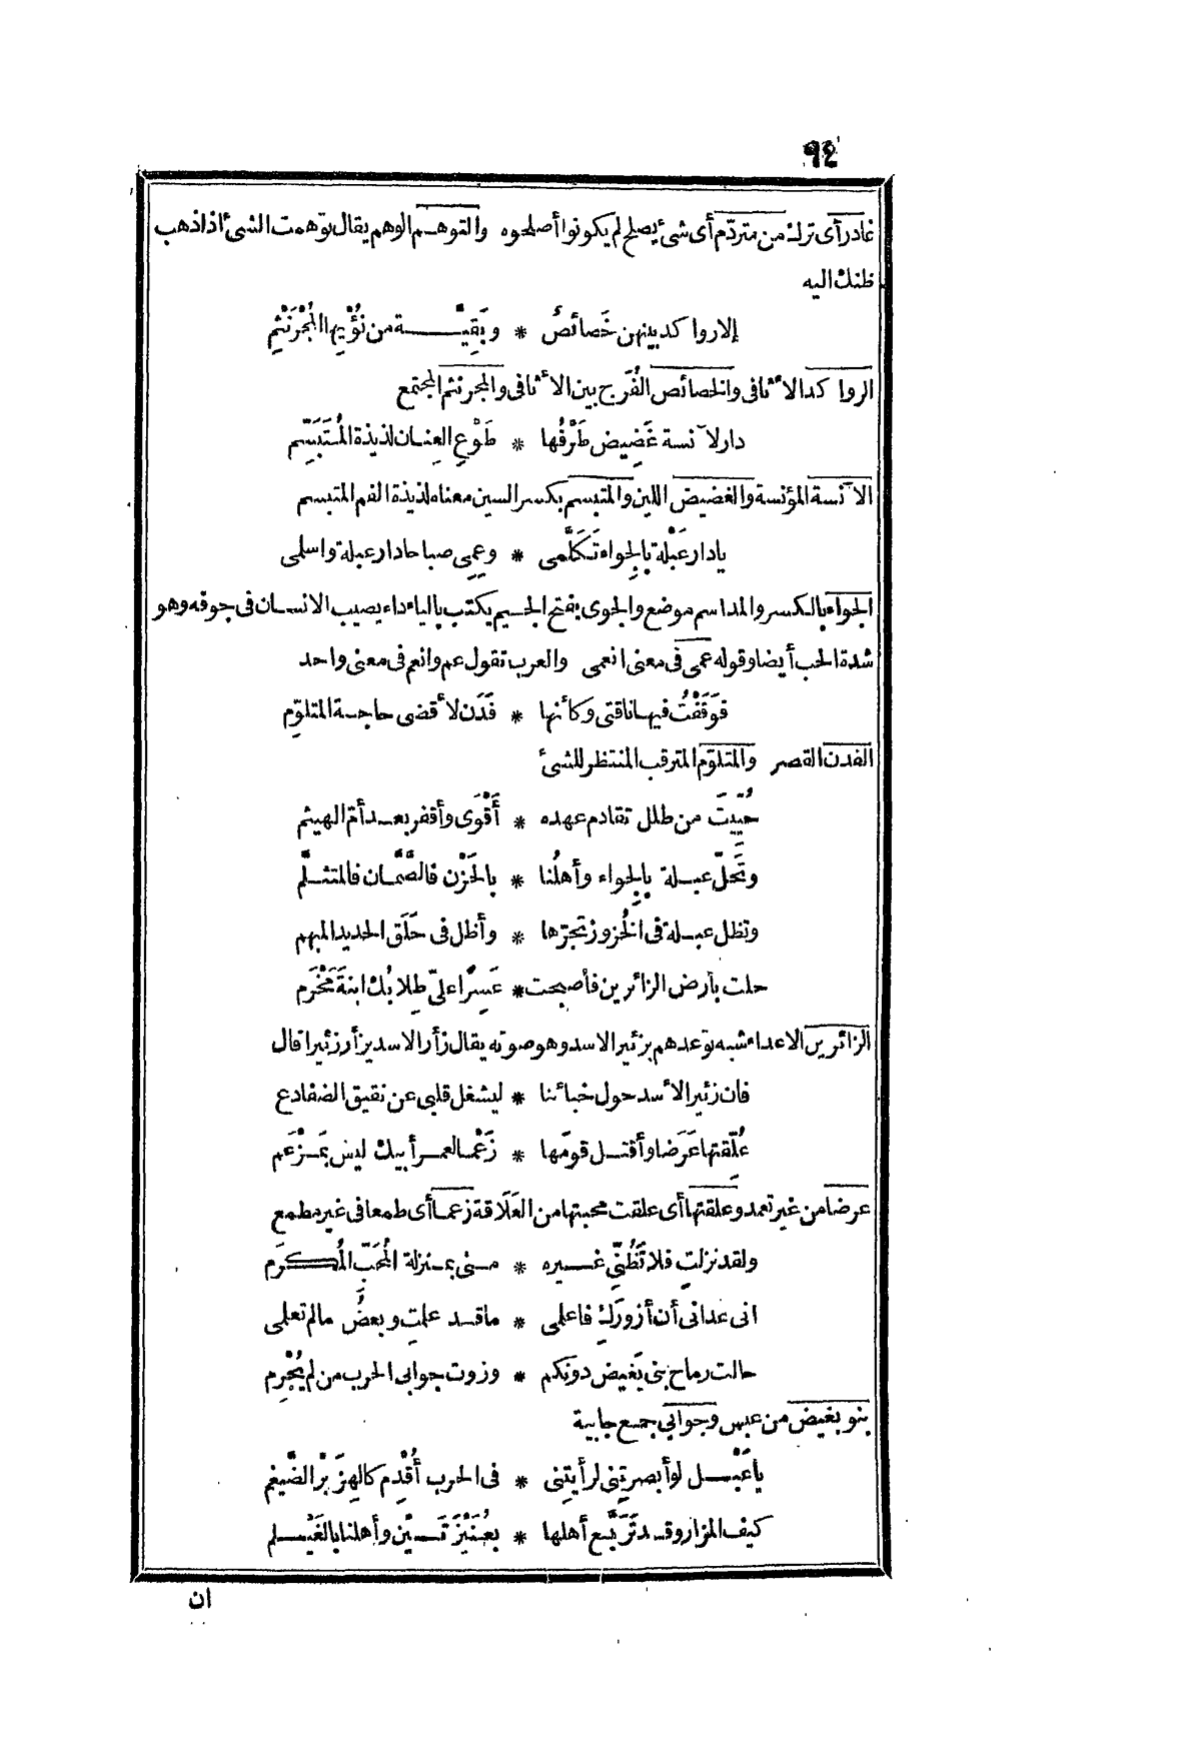 ٩٤
غادر أى ترك من متردّم أى شئ يصلح لم يكونوا أصلحوه والتوهم الوهم يقال توهمت الشئ اذا ذهب
ظنك اليه
إلا رواكد بينهن خَصائصُ * وبَقِيَّة من نُؤْيِها المُجْرَنْثِمِ
الرواكد الأثافى والخصائص الفُرَج بين الأثافى والمجرنثم المجتمع
دار لآنسة غَضِيضٍ طَرْفُها * طَوْعِ العِنان لذيذة المُتَبَسَّمِ
الآنسة المؤنسة والغضيض اللين والمتبسم بكسر السين معناه لذيذة الفم المتبسم
يا دار عَبْلة بِالجِواء تَكَلَّمى * وعِمِى صباحا دار عبلة واسلمى
الجواء بالكسر والمد اسم موضع والجوى بفتح الجيم يكتب بالياء داء يصيب الانسان فى جوفه وهو
شدة الحب أيضا وقوله عمى فى معنى انعمى والعرب تقول عم وانعم فى معنى واحد
فوَقَفْتُ فيها ناقتى وكأنها * فَدَن لأقضى حاجة المتلوِّم
الفدن القصر والمتلوّم المترقب المنتظر للشئ
حُيِّيتَ من طلل تقادم عهده * أَقْوَى وأقفر بعد أمّ الهيثم
وتَحُلّ عبلة بِالجِواء وأهلُنا * بالحَزْن فالصَّمّان فالمتثلَّم
وتظل عبلة فى الخُزوز تجرّها * وأظل فى حَلَق الحديد المبهم
حلت بأرض الزائرين فأصبحت * عَسِرًا علىّ طِلابُك ابنةَ مَخْرَم
الزائرين الاعداء شبه توعدهم بزئير الاسد وهو صوته يقال زأر الاسد يزأر زئيرا قال
فان زئير الأسد حول خبائنا * ليشغل قلبى عن نقيق الضفادع
عُلِّقتها عَرَضا وأقتل قومَها * زَعْما لعمر أبيك ليس بمَزْعَم
عرضا من غير تعمد وعلقتها أى علقت محبتها من العَلَاقة زعما أى طمعا فى غير مطمع
ولقد نزلتِ فلا تَظُنِّى غيره * منى بمنزلة المُحَبّ المُكرَم
انى عدانى أن أزورَكِ فاعلمى * ما قد علمتِ وبعضُ ما لم تعلمى
حالت رماح بنى بَغيض دونكم * وزوت جوابى الحرب من لم يُجْرِم
بنو بغيض من عبس وجوابى جمع جابية
يا عَبْل لو أبصرتِنى لرأيتِنى * فى الحرب أُقْدِم كالهِزَبْر الضَّيغم
كيف المزار وقد تَرَبَّع أهلها * بعُنَيْزَتَيْن وأهلنا بالغَيْلم
ان